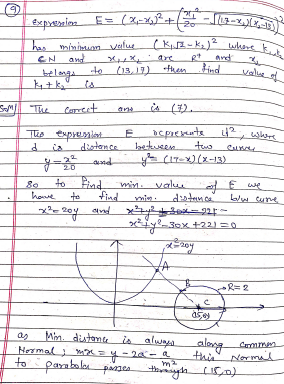 9
expression E = (x₁-x₂)² + (x₁²/20 - √(17-x₂)(x₂-13))²
has minimum value (k₁√2 - k₂)² where k₁, k₂
∈N and x₁, x₂ are R⁺ and x₂
belongs to (13,17) then find value of
k₁+k₂ is
Soln/ The correct ans is (7).
This expression E represents d², where
d is distance between two curve
y = x²/20 and y² = (17-x)(x-13)
So to find min. value of E we
have to find min. distance b/w curve
x² = 20y and x²+y²
x²+y²-30x+221=0
x²=20y
A
B
R=2
C
(15,0)
as Min. distance is always along common
Normal; mx = y - 2a - a/m² this Normal
to parabola passes through (15,0)